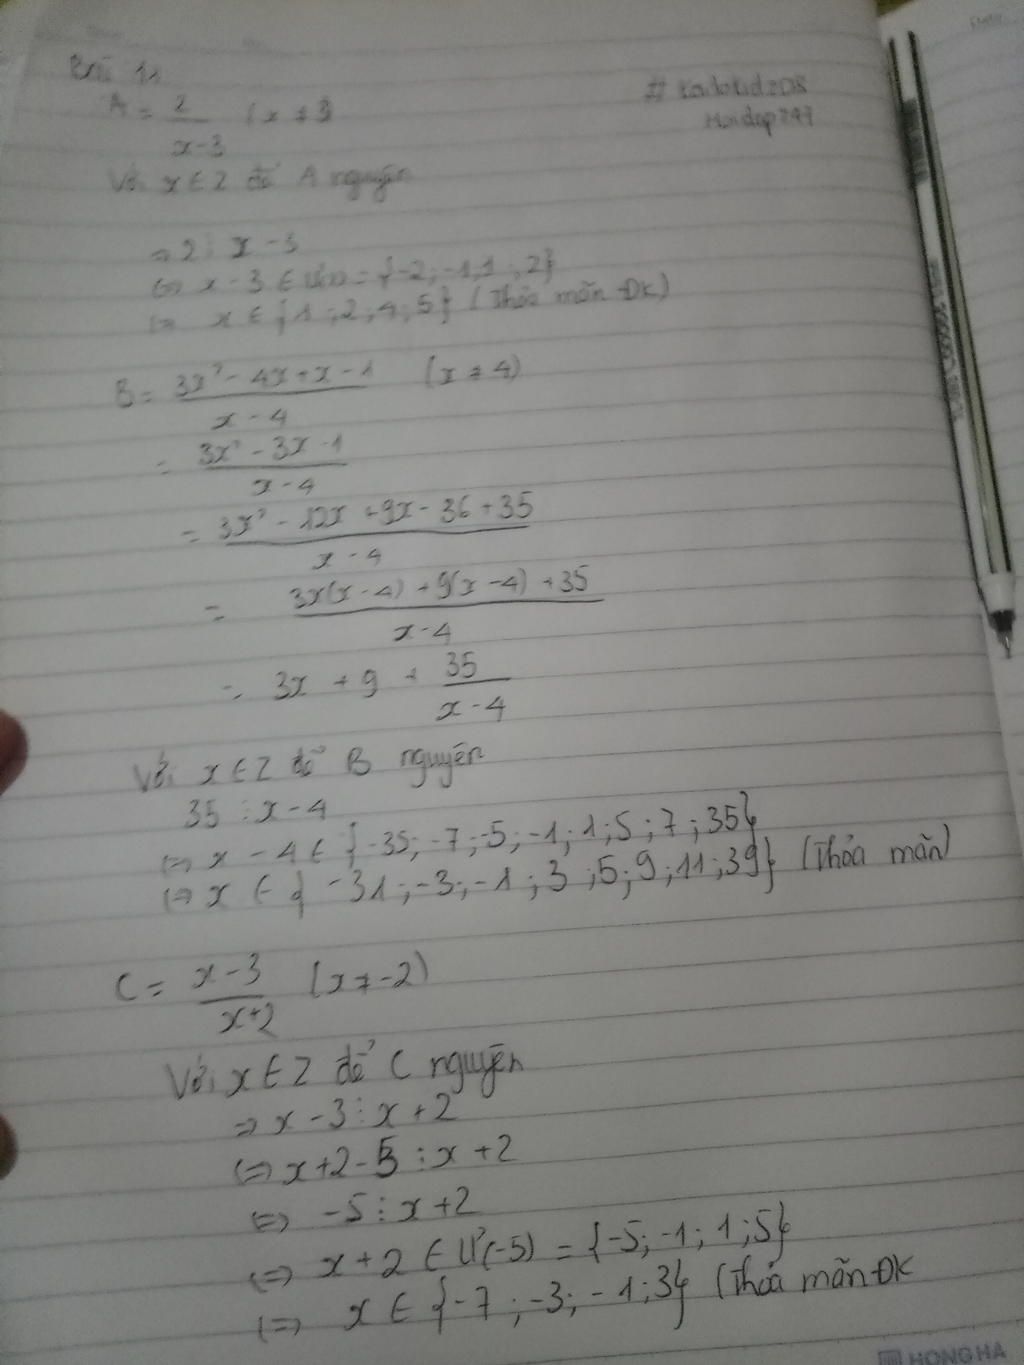 Bài 11
# Kaitokid208
Hoidap247
A = 2/(x-3) (x ≠ 3
Với x ∈ Z để A nguyên
⇒ 2 ⋮ x - 3
⇔ x - 3 ∈ Ư(2) = {-2; -1; 1; 2}
⇔ x ∈ {1; 2; 4; 5} (Thỏa mãn ĐK)
B = (3x² - 4x + x - 1)/(x - 4) (x ≠ 4)
= (3x² - 3x - 1)/(x - 4)
= (3x² - 12x + 9x - 36 + 35)/(x - 4)
= (3x(x - 4) + 9(x - 4) + 35)/(x - 4)
= 3x + 9 + 35/(x - 4)
Với x ∈ Z để B nguyên
35 ⋮ x - 4
⇔ x - 4 ∈ {-35; -7; -5; -1; 1; 5; 7; 35}
⇔ x ∈ {-31; -3; -1; 3; 5; 9; 11; 39} (Thỏa mãn)
C = (x - 3)/(x + 2) (x ≠ -2)
Với x ∈ Z để C nguyên
⇒ x - 3 ⋮ x + 2
⇔ x + 2 - 5 ⋮ x + 2
⇔ -5 ⋮ x + 2
⇔ x + 2 ∈ Ư(-5) = {-5; -1; 1; 5}
⇔ x ∈ {-7; -3; -1; 3} (Thỏa mãn ĐK
HONG HA